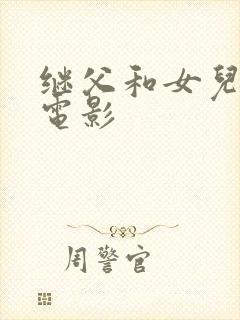 继父和女兒
電影
周警官